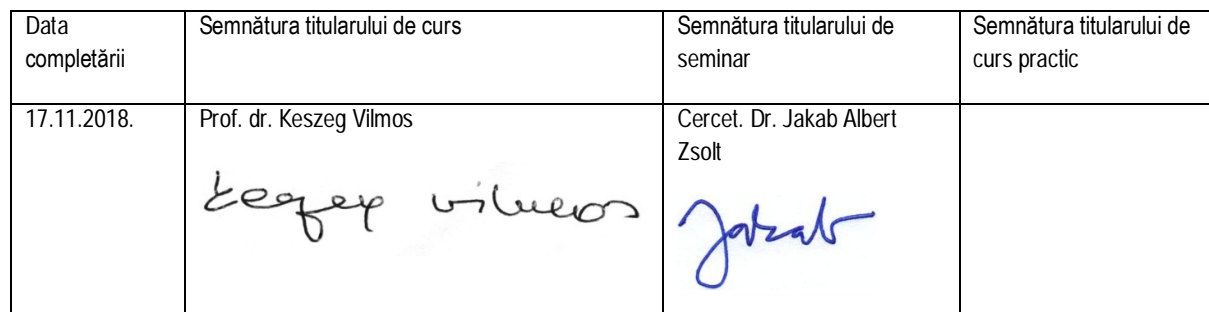 Data
completării
Semnătura titularului de curs
Semnătura titularului de
seminar
Semnătura titularului de
curs practic
17.11.2018.
Prof. dr. Keszeg Vilmos
Cercet. Dr. Jakab Albert
Zsolt
Keszeg Vilmos
Jakab